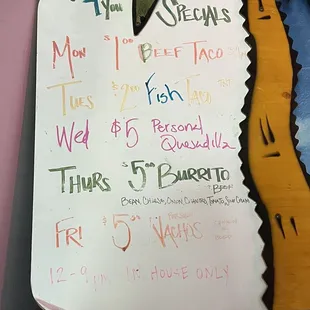 4 You Specials
Mon $1.00 Beef Taco
Tues $2.00 Fish Taco
Wed $5 Personal Quesadilla
Thurs $5.00 Burrito
Bean, Cheese, Onion, Cilantro, Tomato, Sour Cream
Fri $5.00 Nachos
12-9pm In House Only